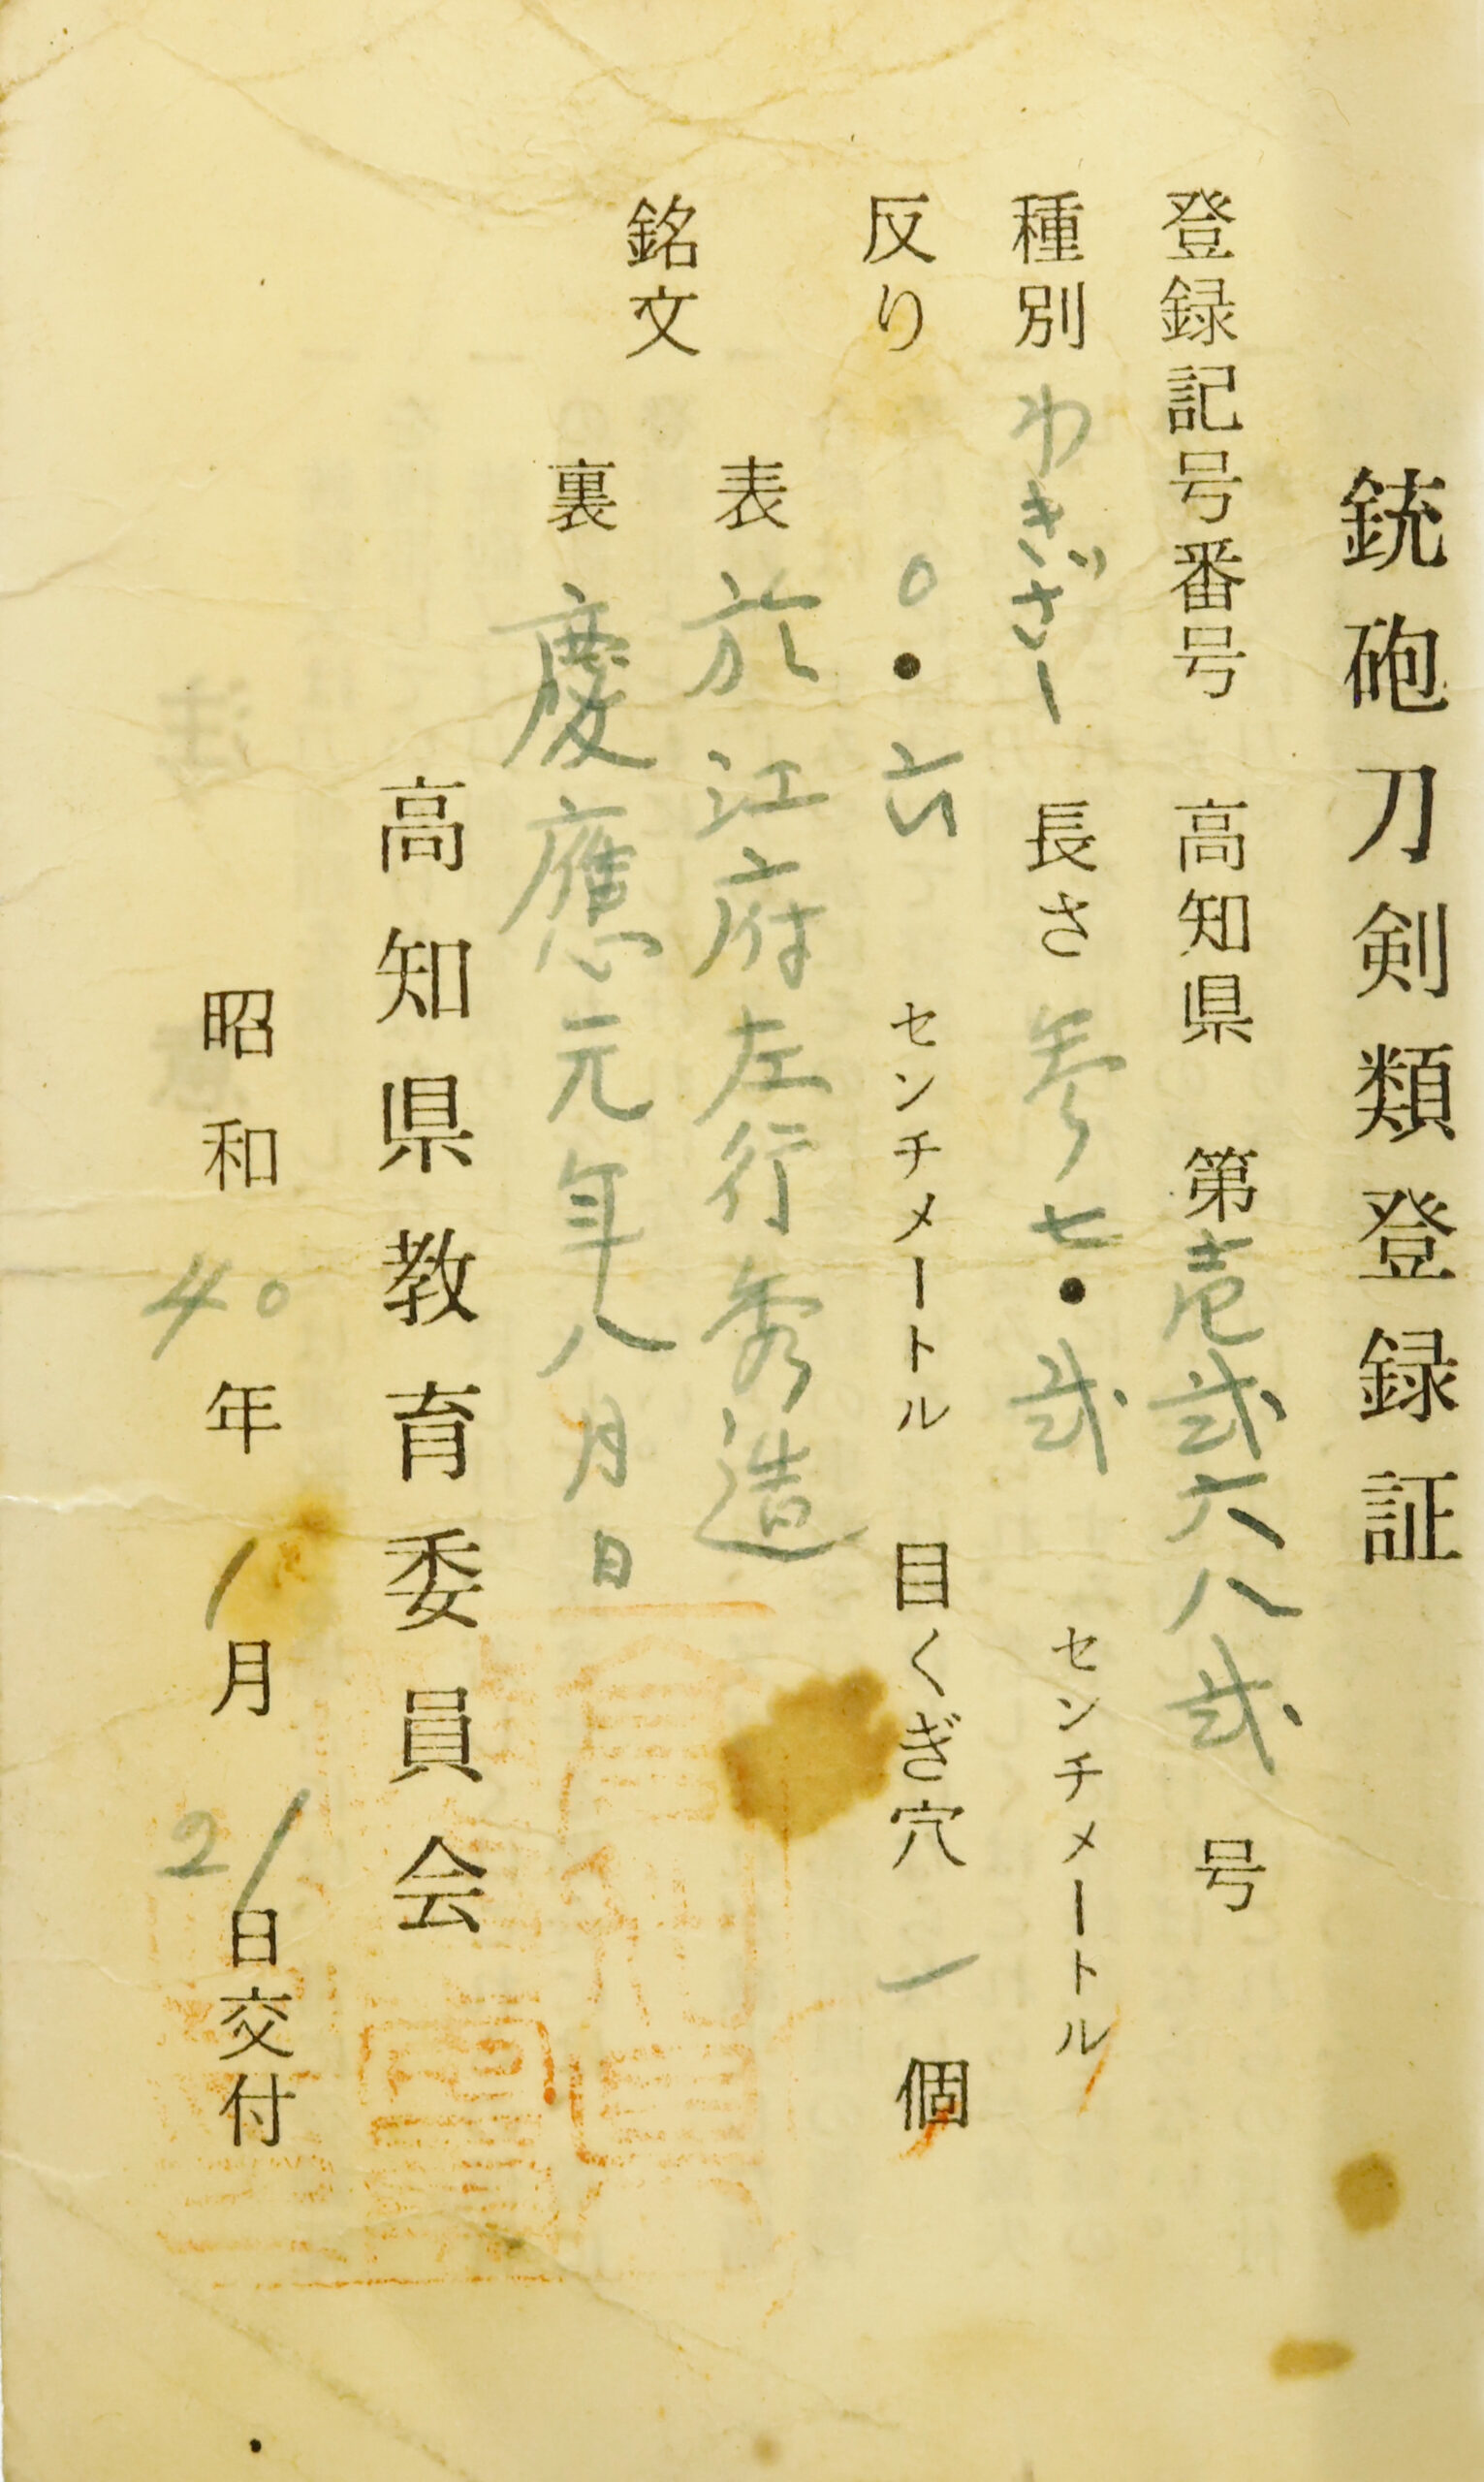 銃砲刀剣類登録証
登録記号番号 高知県 第壱弐六八弐号
種別 わきざし 長さ 参七・弐 センチメートル
反り 〇・六 センチメートル 目くぎ穴 一 個
銘文
表 於江府左行秀造
裏 慶應元年八月日
高知県教育委員会
昭和40年1月21日交付